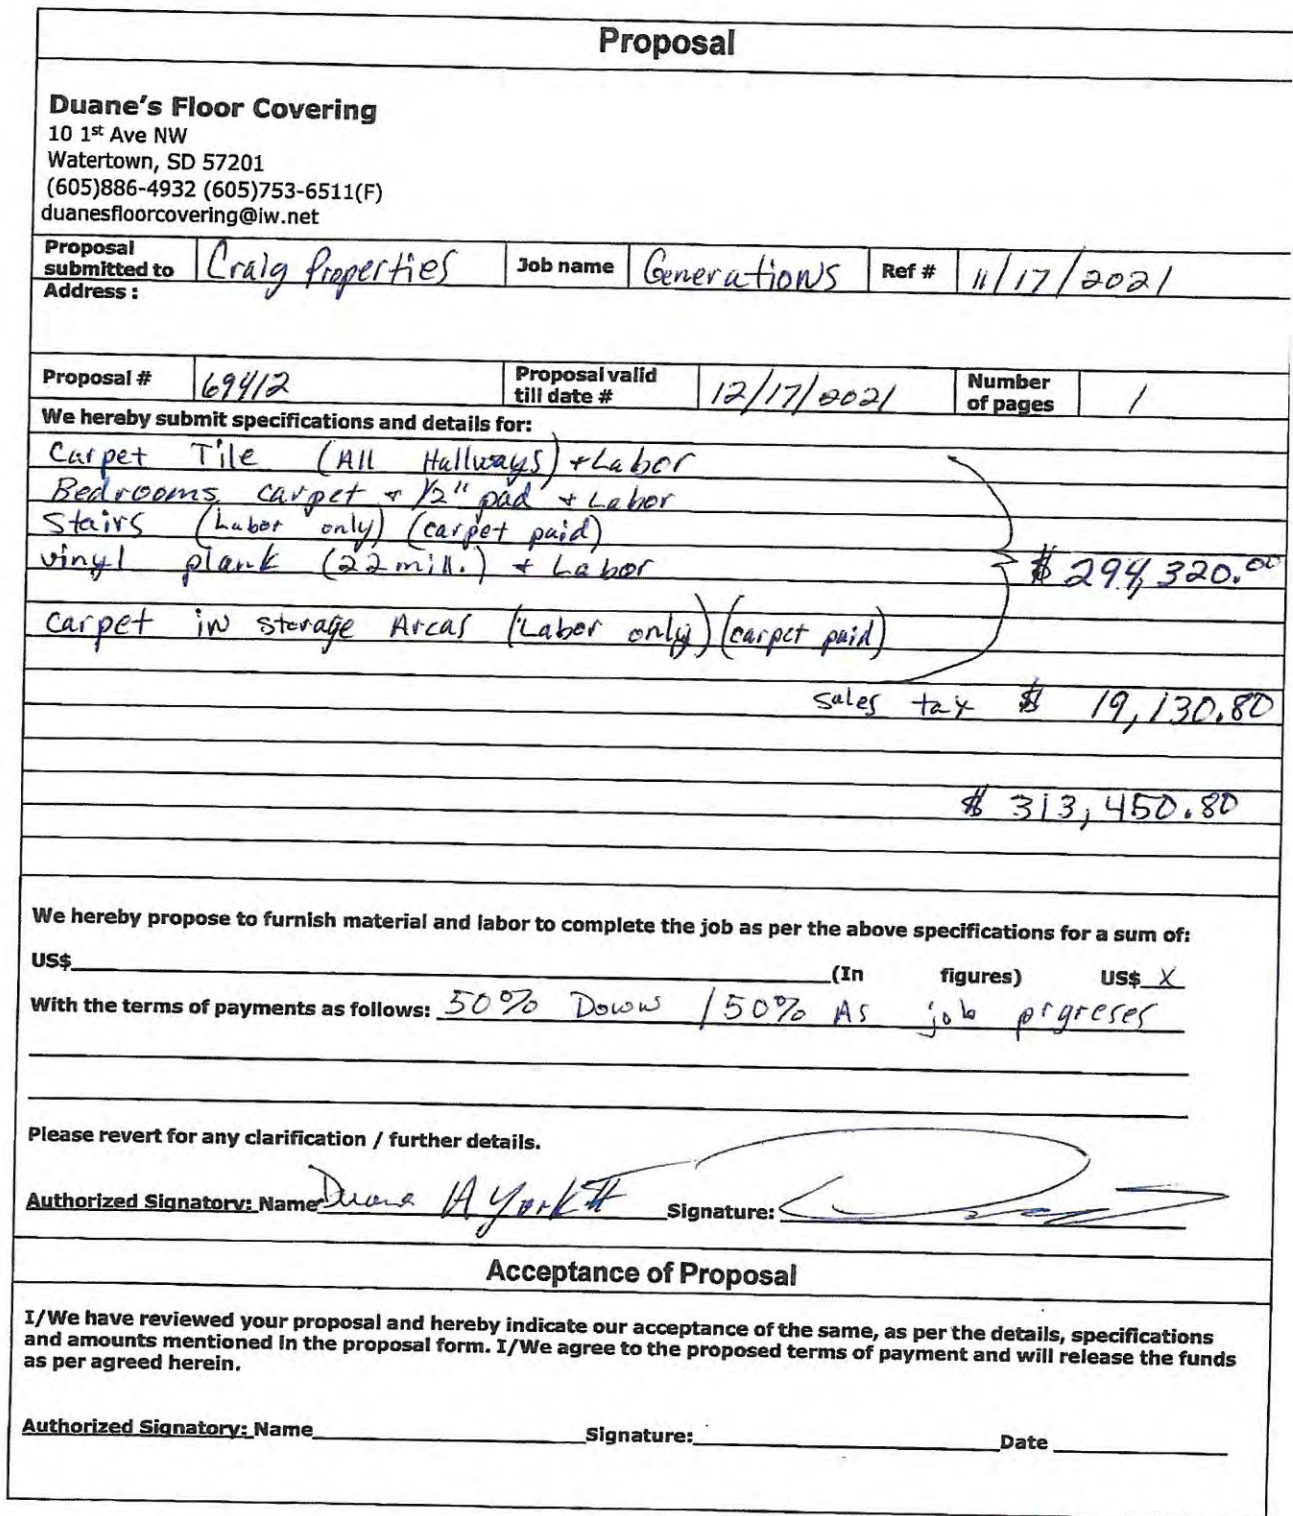 Proposal
Duane's Floor Covering
10 1st Ave NW
Watertown, SD 57201
(605)886-4932 (605)753-6511(F)
duanesfloorcovering@iw.net
Proposal submitted to Craig Properties Job name Generations Ref # 11/17/2021
Address :
Proposal # 69412 Proposal valid till date # 12/17/2021 Number of pages 1
We hereby submit specifications and details for:
Carpet Tile (All Hallways) + Labor
Bedrooms carpet + 1/2" pad + Labor
Stairs (Labor only) (carpet paid)
vinyl plank (22 mill.) + Labor $ 294,320.00
carpet in storage Areas (Labor only) (carpet paid)
sales tax $ 19,130.80
$ 313,450.80
We hereby propose to furnish material and labor to complete the job as per the above specifications for a sum of:
US$ (In figures) US$ X
With the terms of payments as follows: 50% Down / 50% As job prgreses
Please revert for any clarification / further details.
Authorized Signatory: Name Duane A York II Signature:
Acceptance of Proposal
I/We have reviewed your proposal and hereby indicate our acceptance of the same, as per the details, specifications
and amounts mentioned in the proposal form. I/We agree to the proposed terms of payment and will release the funds
as per agreed herein.
Authorized Signatory: Name Signature: Date